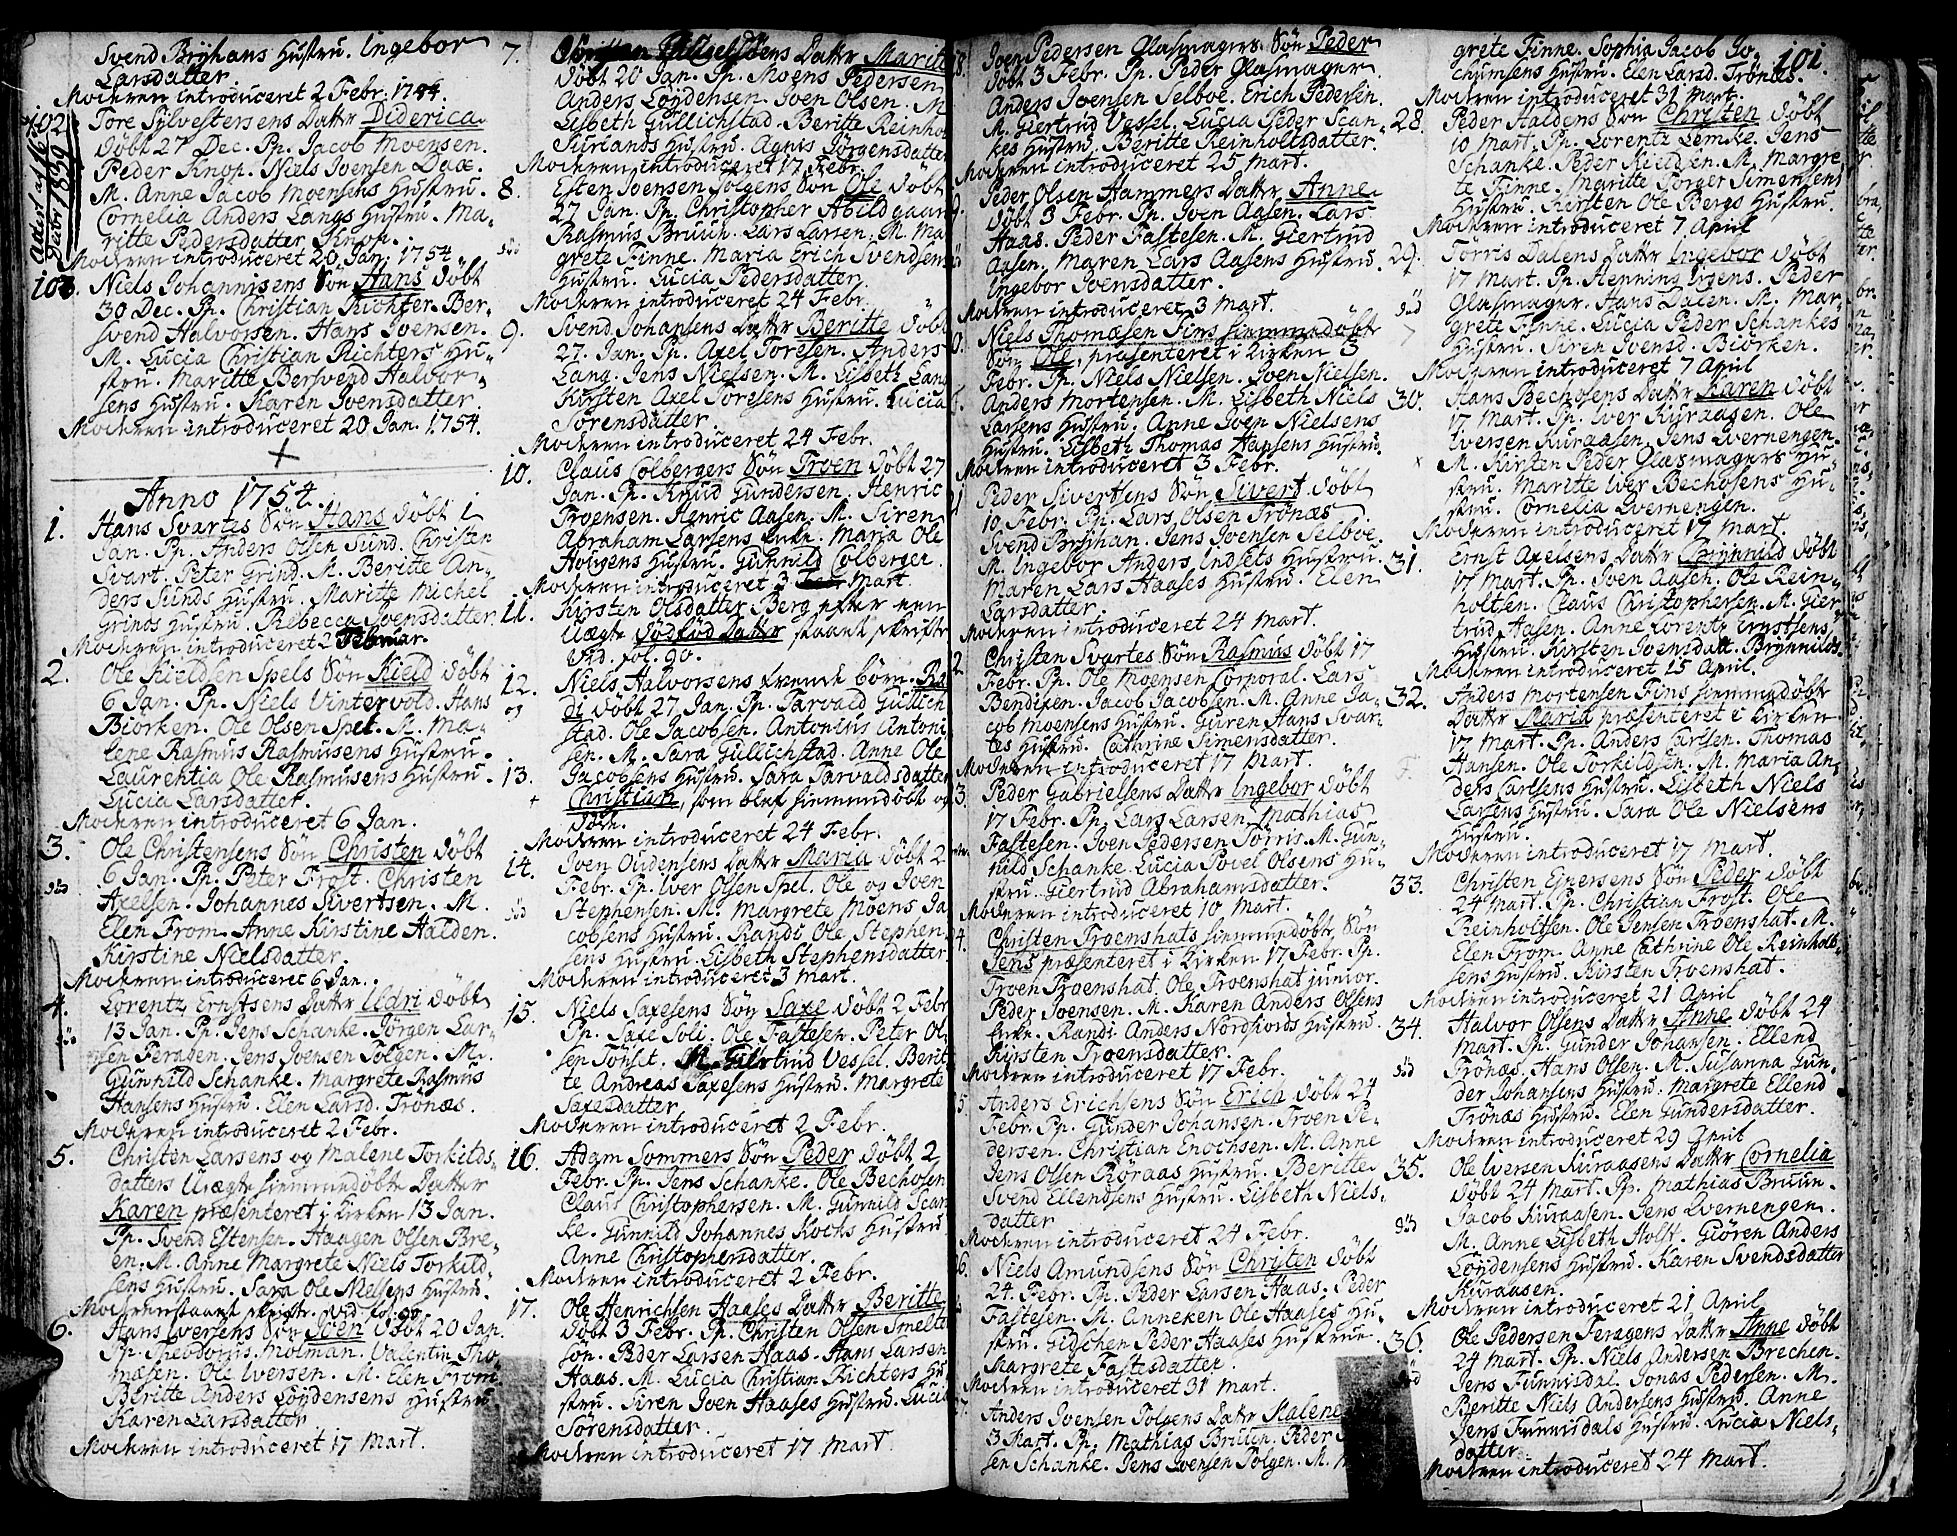 Svend Bryhans Hustru. Ingebor
Larsdatter.
Moderen introduceret 2 Febr. 1754.
102
Tore Sylvestersens Datter Diderica
Döbt 27 Dec. Pp. Jacob Moensen.
Peder Knop. Niels Joensen Daae.
M. Anne Jacob Moensens Hustru.
Cornelia Anders Langs Hustru. Ma-
ritte Pedersdatter Knop.
Moderen introduceret 20 Jan. 1754
103. Niels Johannisens Sön Hans döbt
30 Dec. Pp. Christian Richter. Ber-
svend Halvorsen. Hans Joensen.
M. Lucia Christian Richters Hu-
stru. Maritte Bersvend Halvor-
sens Hustru. Karen Joensdatter
Moderen introduceret 20 Jan. 1754.
Anno 1754.
1. Hans Svartes Sön Hans döbt 1
Jan. Pp. Anders Olsen Sund. Christen
Svart. Peter Grind. M. Beritte An-
ders Sunds Hustru. Maritte Michel
Grinds Hustru. Rebecca Joensdatter
Moderen introduceret 2 Februar.
2. Ole Kieldsen Spels Sön Kield döbt
6 Jan. Pp. Niels Vintervold. Hans
Biörken. Ole Olsen Spel. M. Ma-
lene Rasmus Rasmusens Hustru.
Laurentia Ole Rasmusens Hustru.
Lucia Larsdatter.
Moderen introduceret 6 Jan.
3. Ole Christensens Sön Christen döbt
6 Jan. Pp. Peter Frost. Christen
Axelsen. Johannes Sivertsen. M.
Elen From. Anne Kirstine Halden.
Kirstine Nielsdatter.
Moderen introduceret 6 Jan.
4. Lorentz Ernstsens Datter Eldri döbt
13 Jan. Pp. Jens Schanke. Jörgen Lar-
sen Feragen. Jens Joensen Tolgen. M.
Gunhild Schanke. Margrete Rasmus
Hansens Hustru. Elen Larsd. Trönæs.
Moderen introduceret 2 Febr.
5. Christen Larsens og Malene Torkilds-
datters Uægte hiemmedöbte Datter
Karen præsenteret i Kirken 13 Jan.
Pp. Svend Estensen. Haagen Olsen Bre-
en. M. Anne Margrete Niels Torkild-
sens Hustru. Sara Ole Nielsens Hustru.
Moderen staaet skrifte. vid. fol. 90.
6. Hans Iversens Sön Joen döbt 20 Jan.
Pp. Theodorus Molman. Valentin Tho-
mæsen. Ole Iversen. M. Elen From.
Beritte Anders Löydensens Hustru
Karen Larsdatter
Moderen introduceret 17 Mart.
7. Datter Maritte
Döbt 20 Jan. Pp. Moens Pedersen
Anders Löydensen. Joen Olsen. M.
Lisbeth Gullichstad. Beritte Reinho
Surlands Hustru. Agnis Jörgensdatter
Moderen introduceret 17 Febr.
8. Esten Joensen Tolgens Sön Ole döbt
27 Jan. Pp. Christopher Abildgaard
Rasmus Bruun. Lars Larsen. M. Ma
grete Finne. Maria Erich Svendsens
Hustru. Lucia Pedersdatter.
Moderen introduceret 24 Febr.
9. Svend Johansens Datter Beritte döbt
27. Jan. Pp. Axel Toresen. Anders
Lang. Jens Nielsen. M. Lisbeth Lang
Kirsten Axel Toresens Hustru. Lucia
Sörensdatter
Moderen introduceret 24 Febr.
10. Claus Colbergers Sön Troen döbt 27
Jan. Pp. Knud Gundersen. Henric
Troensen. Henric Aasen. M. Siren
Abraham Larsens Enke. Maria Ole
Holgens Hustru. Gunnild Colberger.
Moderen introduceret 3 Mart
11. Kirsten Olsdatter Berg efter een
Uægte Dödfød Datter staaet skrifte
vid. fol. 90.
12. Niels Halvorsens tvende börn. Ra
og di döbt 27 Jan. Pp. Tarvald Gullich
stad. Ole Jacobsen. Antonius Antoni
sen. M. Sara Gullichstad. Anne Ole
13. Jacobsens Hustru. Sara Tarvaldsdatter
Christian, som blef hiemmedöbt og
döde.
Moderen introduceret 24 Febr.
14. Joen Oudensens Datter Maria döbt 2
Febr. Pp. Iver Olsen Spel. Ole og Joen
Stephensen. M. Margrete Moens Ja
cobsens Hustru. Randi Ole Stephen
sens Hustru. Lisbeth Stephensdatter
Moderen introduceret 3 Mart.
15. Niels Saxesens Sön Saxe döbt 2 Febr
Pp. Saxe Soli. Ole Fastesen. Peter Ol-
sen Tonset. M. Giertrud Vessel. Berit
te Andreas Saxesens Hustru. Margrete
Saxesdatter
Moderen introduceret 2 Febr.
16. Adam Sommers Sön Peder döbt 2
Febr. Pp. Jens Schanke. Ole Bechosen
Claus Christophersen. M. Gunnild Scan
ke. Gunnild Johannes Kochs Hustru
Anne Christophersdatter.
Moderen introduceret 2. Febr.
17. Ole Henrichsen Haases Datter Beritte
döbt 3 Febr. Pp. Christen Olsen Smelte
son. Peder Larsen Haas. Hans Larsen
Haas. M. Lucia Christian Richters Hu
stru. Siren Joen Haases Hustru. Lucia
Sörensdatter.
Moderen introduceret 17 Mart.
Joen Pedersen Glasmagers Sön Peder
döbt 3 Febr. Pp. Peder Glasmager.
Anders Joensen Selboe. Erich Pedersen.
M. Giertrud Vessel. Lucia Peder Scan-
kes Hustru. Beritte Reinholtsdatter.
Moderen introduceret 25 Mart.
Peder Olsen Hammers Datter Anne
döbt 3 Febr. Pp. Joen Aasen. Lars
Haas. Peder Fastesen. M. Giertrud
Aasen. Maren Lars Aasens Hustru.
Ingebor Joensdatter.
Moderen introduceret 3 Mart.
Niels Thomæsen Fins hiemmedöbte
Sön Ole, præsenteret i Kirken 3
Febr. Pp. Niels Nielsen. Joen Nielsen.
Anders Mortensen. M. Lisbeth Niels
Larsens Hustru. Anne Joen Nielsens
Hustru. Lisbeth Thomas Hansens Hustru
Moderen introduceret 3 Febr.
Peder Sivertsens Sön Sivert döbt
10 Febr. Pp. Lars Olsen Trönæs
Svend Bryhan. Jens Joensen Selboe.
M. Ingebor Anders Indsets Hustru.
Maren Lars Haases Hustru. Elen
Larsdatter
Moderen introduceret 24 Mart.
Christen Svartes Sön Rasmus döbt 17
Febr. Pp. Ole Moensen Corporal. Lars
Bendixen. Jacob Jacobsen. M. Anne Ja-
cob Moensens Hustru. Guren Hans Svar
tes Hustru. Cathrine Simensdatter.
Moderen introduceret 17 Mart.
Peder Gabrielsens Datter Ingebor döbt
17 Febr. Pp. Lars Larsen. Mathias
Fastesen. Joen Pedersen Törris. M. Gun-
nild Schanke. Lucia Povel Olsens Hu-
stru. Giertrud Abrahamsdatter.
Moderen introduceret 10 Mart.
Christen Troenshats hiemmedöbte Sön
Jens præsenteret i Kirken 17 Febr. Pp.
Troen Troenshat. Ole Troenshat junior.
Peder Joensen. M. Karen Anders Olsens
Enke. Randi Anders Nordfiords Hustru.
Kirsten Troensdatter.
Moderen introduceret 17 Febr.
Anders Erichsens Sön Erich döbt 24
Febr. Pp. Gunder Johansen. Troen Pe-
dersen. Christian Enochsen. M. Anne
Jens Olsen Röraas Hustru. Beritte
Svend Ellendsens Hustru. Lisbeth Niels-
datter
Moderen introduceret 24 Febr.
Niels Amundsens Sön Christen döbt
24. Febr. Pp. Peder Larsen Haas. Peder
Fastesen. M. Anneken Ole Haases Hu-
stru. Gidschen Peder Haases Hustrue.
Margrete Fastesdatter.
Moderen introduceret 31 Mart.
Anders Joensen Tolgens Datter Malene
3 Mart. Pp. Mathias Bruun. Peder
sen Schanke. Jens Joensen Tolgen. M.
101.
grete Finne. Sophia Jacob Jo-
chumsens Hustru. Elen Larsd. Trönæs.
Moderen introduceret 31 Mart.
28. Peder Haldens Sön Christen döbt
10 Mart. Pp. Lorentz Lemske. Jens
Schanke. Peder Kieldsen. M. Margre-
te Finne. Maritte Torger Simensens
Hustru. Kirsten Ole Bergs Hustru.
Moderen introduceret 7 April
29. Törris Dalens Datter Ingebor döbt
17 Mart. Pp. Henning Irgens. Peder
Glasmager. Hans Dalen. M. Mar-
grete Finne. Lucia Peder Schankes
Hustru. Siren Joensd. Biörken.
Moderen introduceret 7 April
30. Hans Bechosens Datter Karen döbt
17 Mart. Pp. Iver Kuraasen. Ole
Iversen Kuraasen. Jens Qvernengen.
M. Kirsten Peder Glasmagers Hu-
stru. Maritte Iver Bechosens Hu-
stru. Cornelia Qvernengen.
Moderen introduceret 17 Mart.
31. Ernst Axelsens Datter Brynnild döbt
17 Mart. Pp. Joen Aasen. Ole Rein-
holtsen. Claus Christophersen. M. Gier-
trud Aasen. Anne Lorentz Ernstsens
Hustru. Kirsten Joensdatt. Brynnilds-
Moderen introduceret 15 April.
32. Anders Mortensen Fins hiemmedöbte
Datter Maria præsenteret i Kirken
17 Mart. Pp. Anders Carlsen. Thomas
Hansen. Ole Torkildsen. M. Maria An-
ders Carlsens Hustru. Lisbeth Niels
Larsens Hustru. Sara Ole Nielsens
Hustru.
Moderen introduceret 17 Mart.
33. Christen Ejnersens Sön Peder döbt
24 Mart. Pp. Christian Frost. Ole
Reinholtsen. Ole Jensen Troenshat. M.
Elen From. Anne Cathrine Ole Reinholt-
sens Hustru. Kirsten Troenshat.
Moderen introduceret 21 April
34. Halvor Olsens Datter Anne döbt 24
Mart. Pp. Gunder Johansen. Ellend
Trönæs. Hans Olsen. M. Susanna Gun-
der Johansens Hustru. Margrete Ellend
Trönæs Hustru. Elen Gundersdatter.
Moderen introduceret 29 April
35. Ole Iversen Kuraasens Datter Cornelia
döbt 24 Mart. Pp. Mathias Bruun.
Jacob Kuraasen. Jens Qvernengen.
M. Anne Lisbeth Holst. Giören Anders
Löydensens Hustru. Karen Svendsdatter
Kuraasen.
Moderen introduceret 21 April
36. Ole Pedersen Feragens Datter Anne döbt
24 Mart. Pp. Niels Andersen Brechen.
Jens Funnisdal. Jonas Pedersen. M.
Beritte Niels Andersens Hustru. Anne
Jens Funnisdals Hustru. Lucia Niels-
datter
Moderen introduceret 24 Mart.